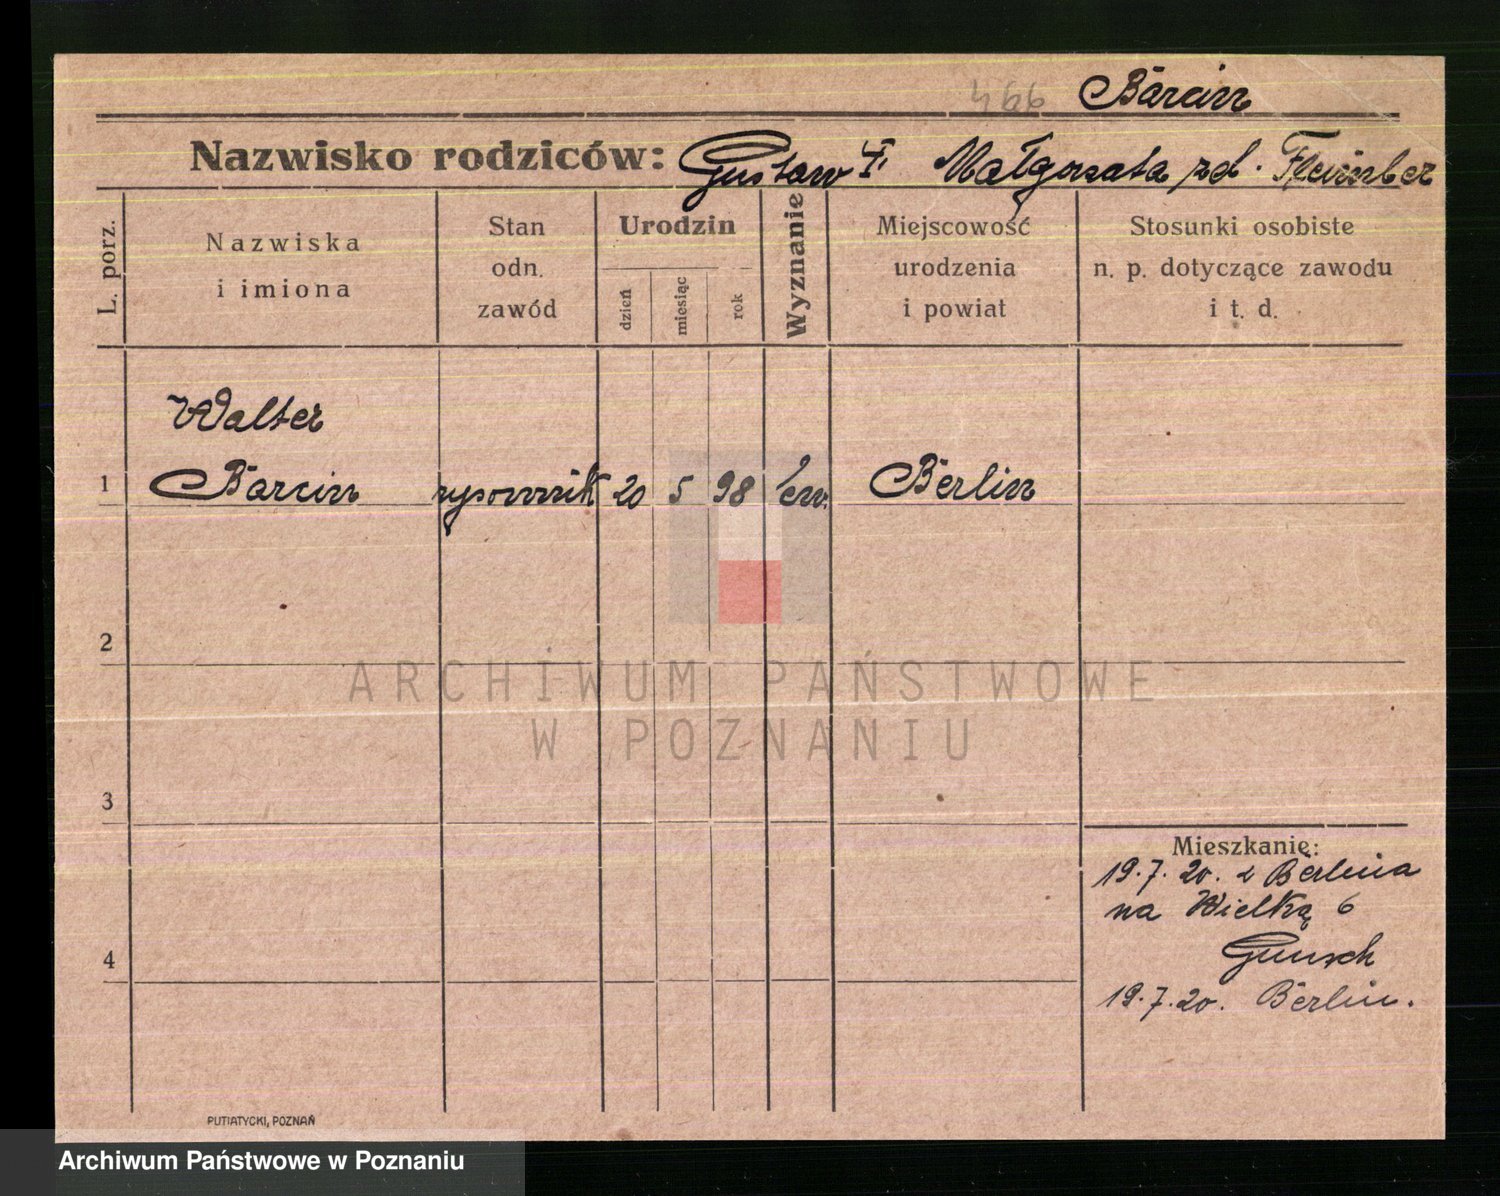 466 Barcin
Nazwisko rodziców: Gustaw i Małgorzata zd.
L. porz.
Nazwiska
i imiona
Stan
odn.
zawód
Urodzin
dzień
miesiąc
rok
Wyznanie
Miejscowość
urodzenia
i powiat
Stosunki osobiste
n. p. dotyczące zawodu
i t. d.
Walter
1 Barcin rysownnik 20 5 98 Berlin
2
3
4
Mieszkanie:
19.7.20. z Berlina
na Wielką 6
19.7.20. Berlin.
PUTIATYCKI, POZNAŃ
ARCHIWUM PAŃSTWOWE
W POZNANIU
Archiwum Państwowe w Poznaniu